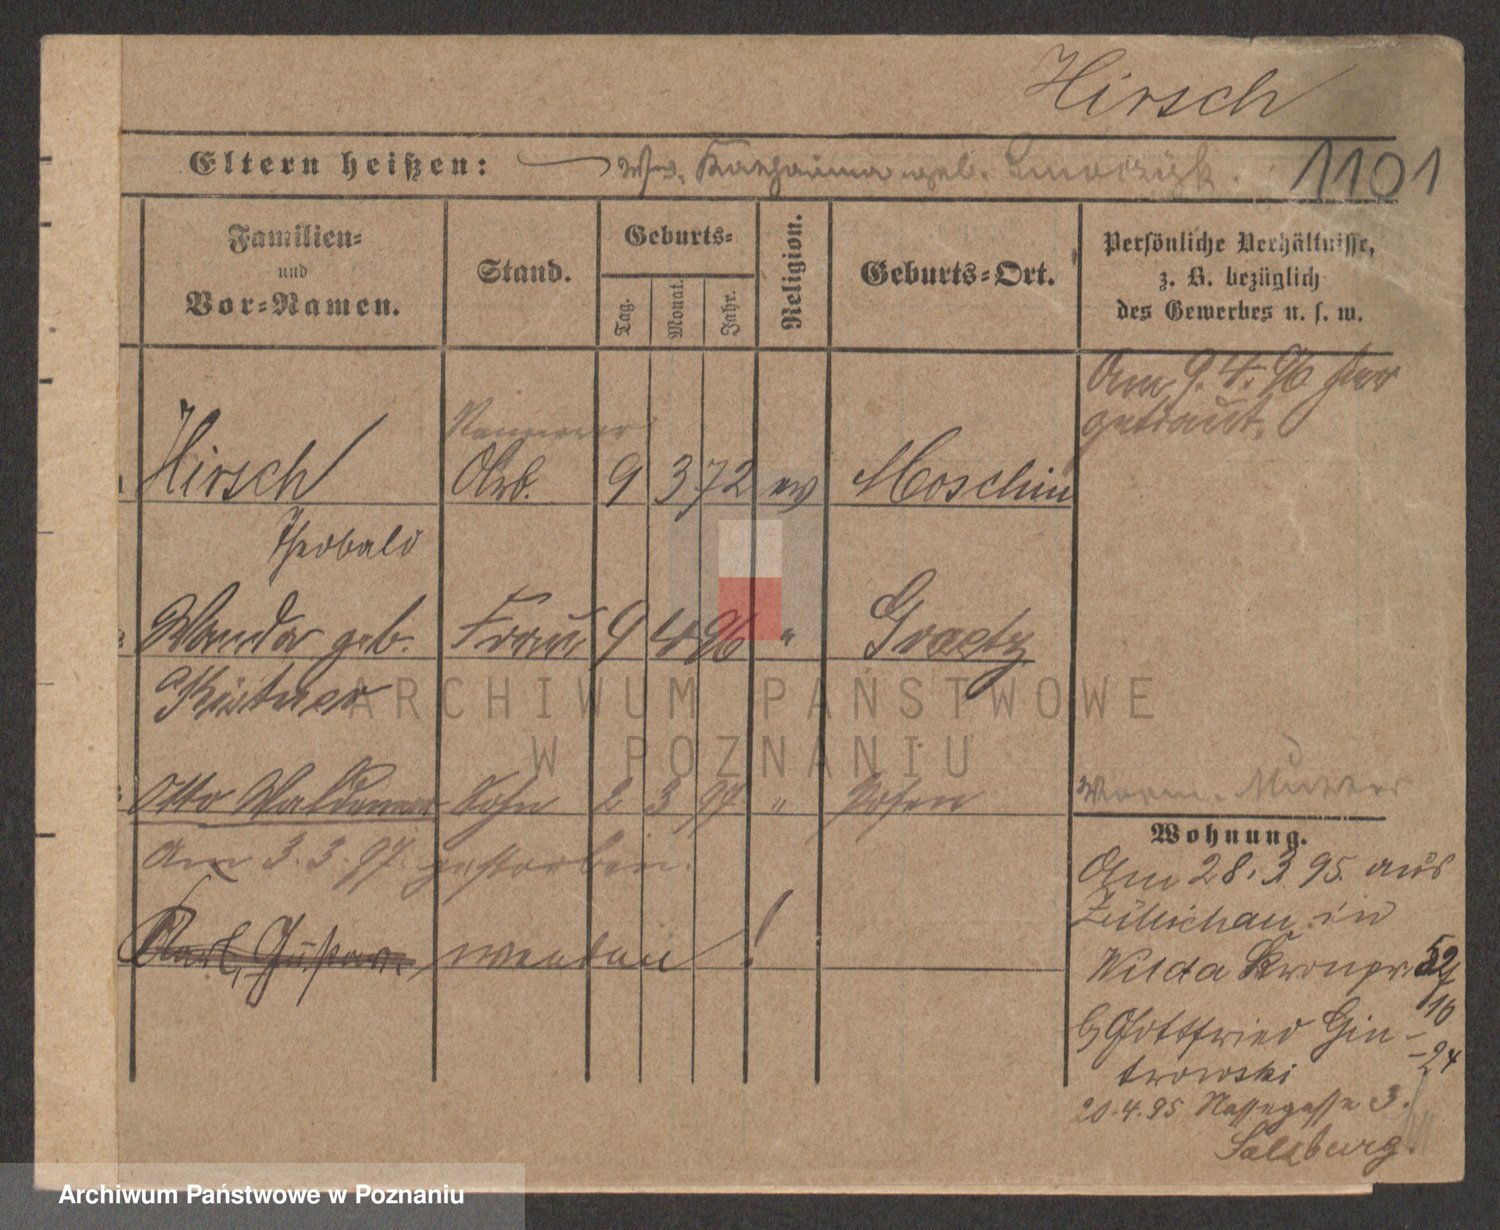 Hirsch
Eltern heißen: Ww. Katharina geb. 1101
Familien= und Vor=Namen.
Stand.
Geburts=
Tag. Monat. Jahr.
Religion.
Geburts=Ort.
Persönliche Verhältnisse,
z. B. bezüglich
des Gewerbes u. s. w.
Am 9.4.96 hier
getraut.
Hirsch Arb. 9 3 72 ev Moschin
Theobald
Wanda geb. Frau 9 4 96 " Graetz
Otto Waldemar Sohn 2 3 97 " Posen
Am 3.3.97. gestorben.
Karl, Gustav !
Wohnung.
Am 28.3 95. aus
Züllichau in
Wilda Kronpr. 52
b/ Gottfried Gin- 16
trowski -24
20.4.95 Nassegasse 3.
Salzburg.
ARCHIWUM PAŃSTWOWE
W POZNANIU
Archiwum Państwowe w Poznaniu